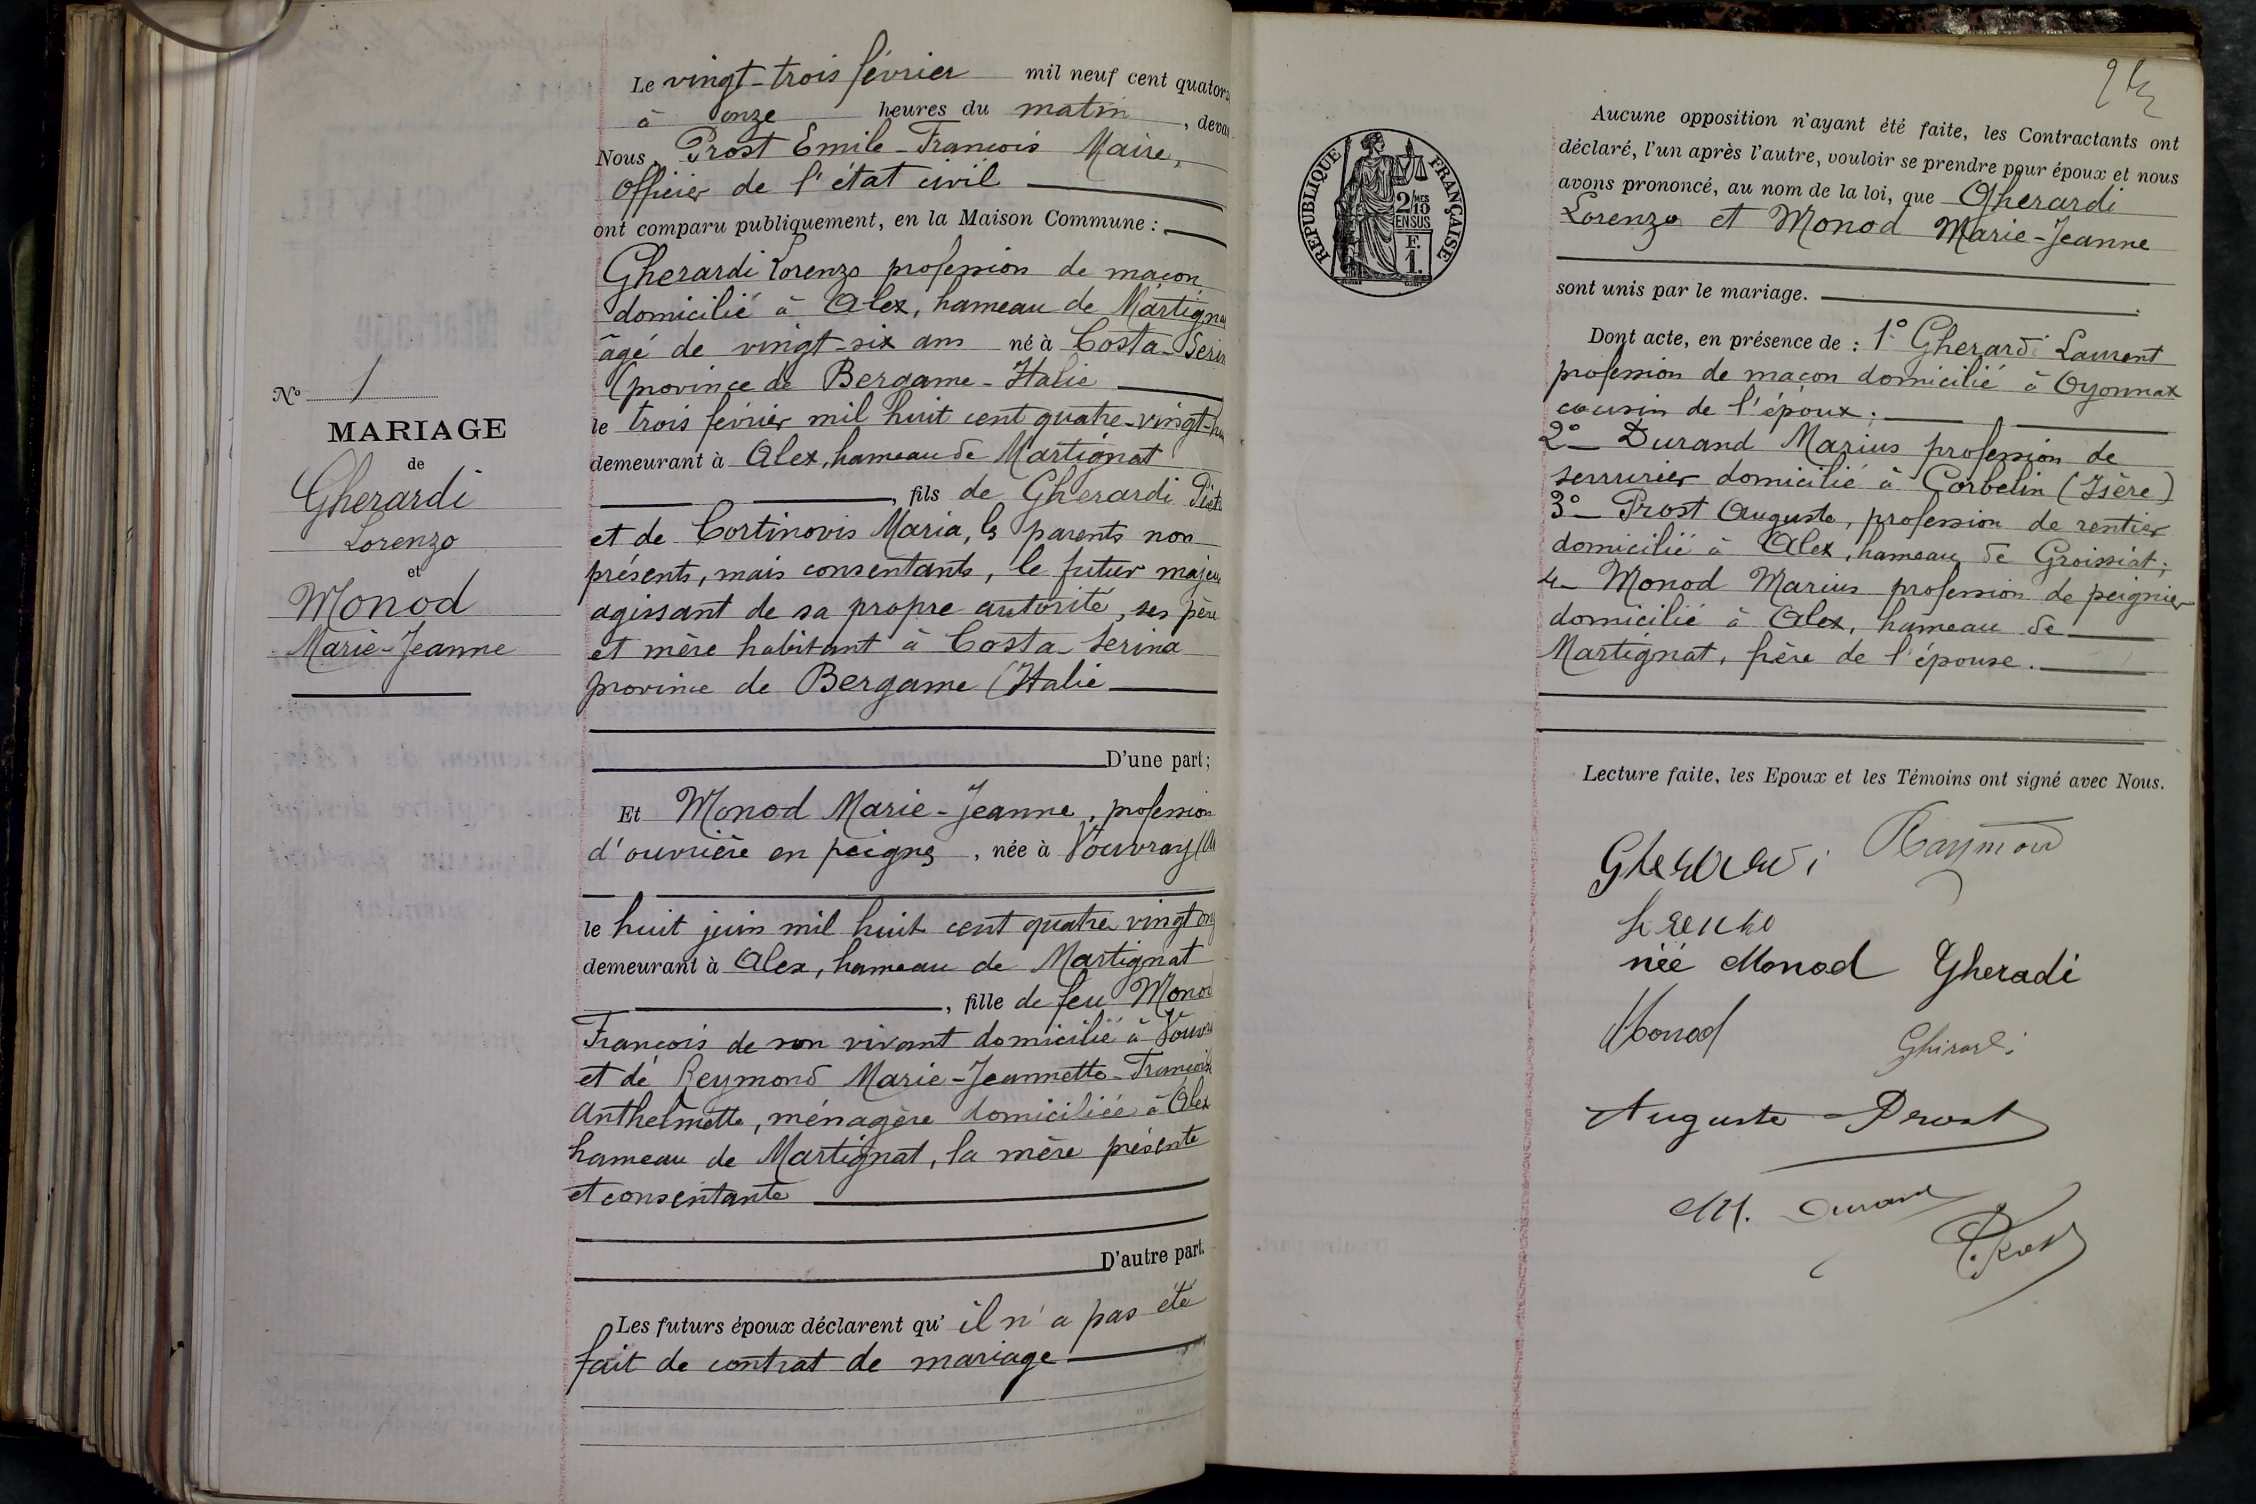 Le vingt-trois février mil neuf cent quatorz
à onze heures du matin, deva
Nous, Prost Emile-François Maire,
officier de l'état civil
ont comparu publiquement, en la Maison Commune :
Gherardi Lorenzo profession de maçon
domicilié à Alex, hameau de Martigna
âgé de vingt-six ans né à Costa-Serin
(province de Bergame-Italie
le trois février mil huit cent quatre-vingt-hu
demeurant à Alex, hameau de Martignat
, fils de Gherardi Piet
et de Cortinovis Maria, les parents non
présents, mais consentants, le futur majeur
agissant de sa propre autorité, ses père
et mère habitant à Costa-Serina
province de Bergame (Italie
D'une part;
Et Monod Marie-Jeanne, profession
d'ouvrière en peignes, née à Vouvray (A
le huit juin mil huit cent quatre vingt onz
demeurant à Alex, hameau de Martignat
, fille de feu Monod
François de son vivant domicilié à Vouvr
et de Reymond Marie-Jeannette-François
Anthelmette, ménagère domiciliée à Alex
hameau de Martignat, la mère présente
et consentante
D'autre part.
Les futurs époux déclarent qu'il n'a pas été
fait de contrat de mariage
No 1
MARIAGE
de
Gherardi
Lorenzo
et
Monod
Marie-Jeanne
RÉPUBLIQUE FRANÇAISE
2/10 MES
EN SUS
F.
1.
Aucune opposition n'ayant été faite, les Contractants ont
déclaré, l'un après l'autre, vouloir se prendre pour époux et nous
avons prononcé, au nom de la loi, que Gherardi
Lorenzo et Monod Marie-Jeanne
sont unis par le mariage.
Dont acte, en présence de : 1° Gherardi Laurent
profession de maçon domicilié à Oyonnax
cousin de l'époux;
2° Durand Marius profession de
serrurier domicilié à Corbelin (Isère)
3° Prost Auguste, profession de rentier
domicilié à Alex, hameau de Groissiat;
4 Monod Marius profession de peignier
domicilié à Alex, hameau de
Martignat, frère de l'épouse.
Lecture faite, les Epoux et les Témoins ont signé avec Nous.
Gherardi Raymond
née Monod Gheradi
Monod Ghirardi
Auguste Prost
M. Durand
Prost